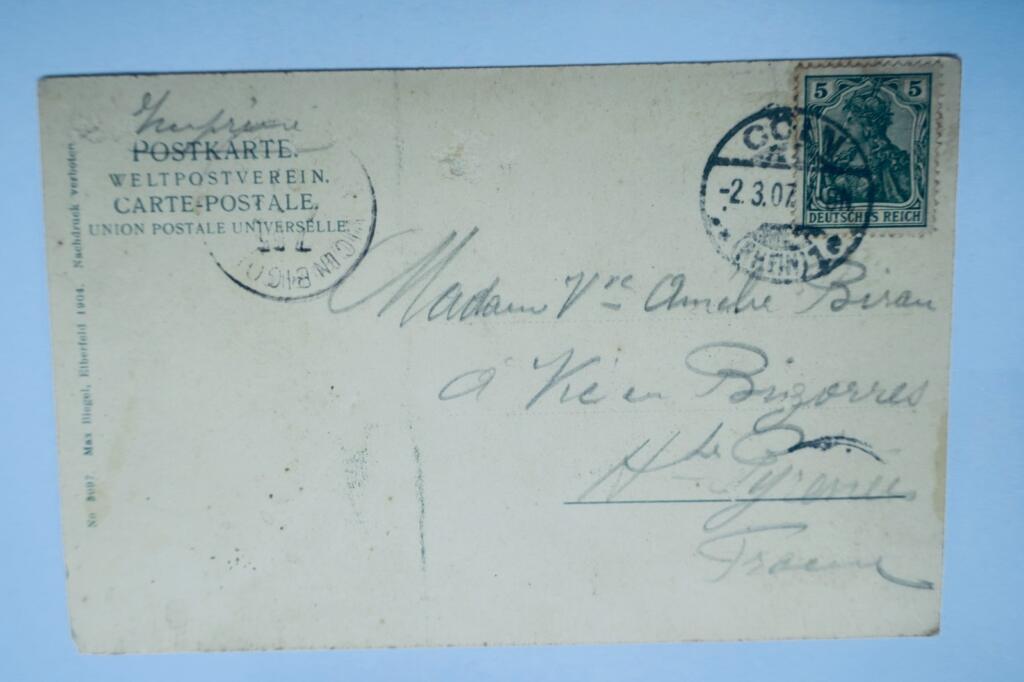 Imprimé
POSTKARTE.
WELTPOSTVEREIN.
CARTE-POSTALE.
UNION POSTALE UNIVERSELLE.
No 3097. Max Biegel, Elberfeld 1904. Nachdruck verboten
5 5
DEUTSCHES REICH
CÖLN
-2.3.07
(RHEIN) 1
Madame Vve Amélie
à Vic en Bigorres
Htes Pyrénées
France